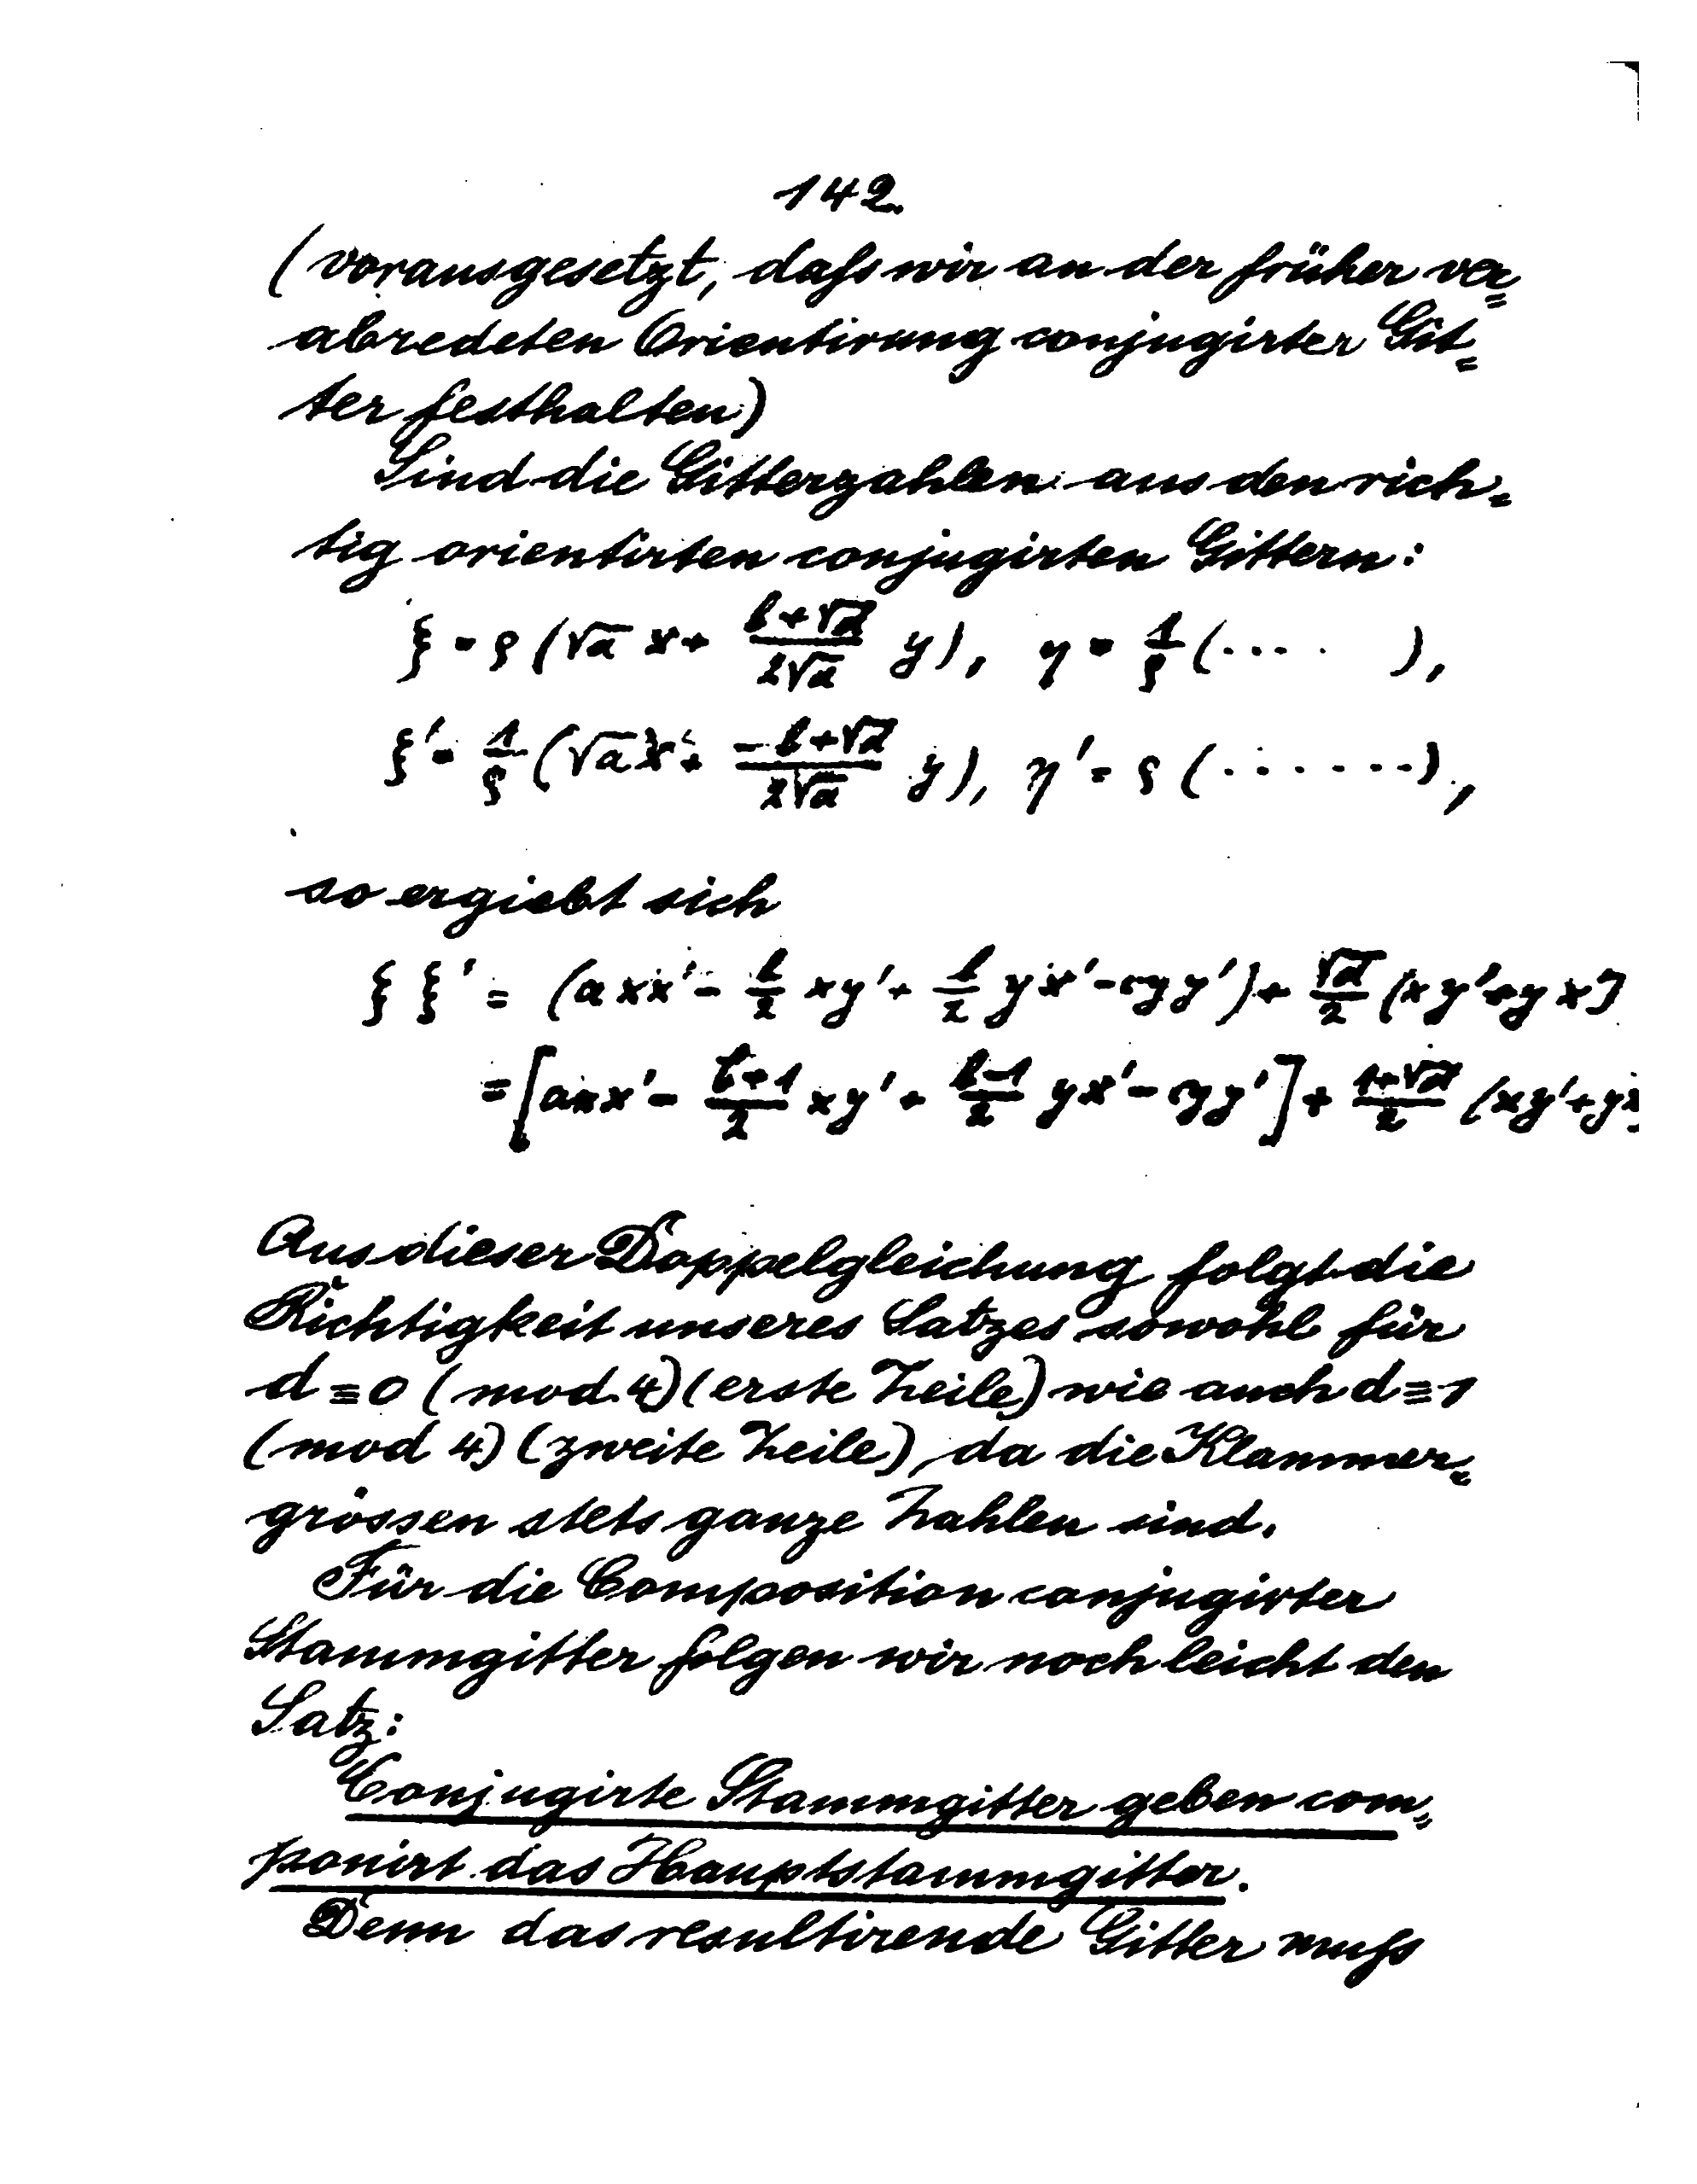 142.
(vorausgesetzt, daſs wir an der früher ver=
abredeten Orientirung conjugirter Git=
ter festhalten)
Sind die Gitterzahlen aus den rich=
tig orientirten conjugirten Gittern:
ξ = ρ (√a x + (b+√d)/(2√a) y), η = 1/ρ (.... ),
ξ' = 1/ρ (√a x' + (-b+√d)/(2√a) y), η' = ρ (.......),
so ergiebt sich
ξ ξ' = (axx' - b/2 xy' + b/2 yx' - cyy') + √d/2 (xy'+yx')
= [axx' - (b+1)/2 xy' + (b-1)/2 yx' - cyy'] + (1+√d)/2 (xy'+yx
Aus dieser Doppelgleichung folgt die
Richtigkeit unseres Satzes sowohl für
d ≡ 0 (mod. 4) (erste Zeile) wie auch d ≡ 1
(mod 4) (zweite Zeile), da die Klammer=
grössen stets ganze Zahlen sind.
Für die Composition conjugirter
Stammgitter folgen wir noch leicht den
Satz:
Conjugirte Stammgitter geben com=
ponirt das Hauptstammgitter.
Denn das resultirende Gitter muſs